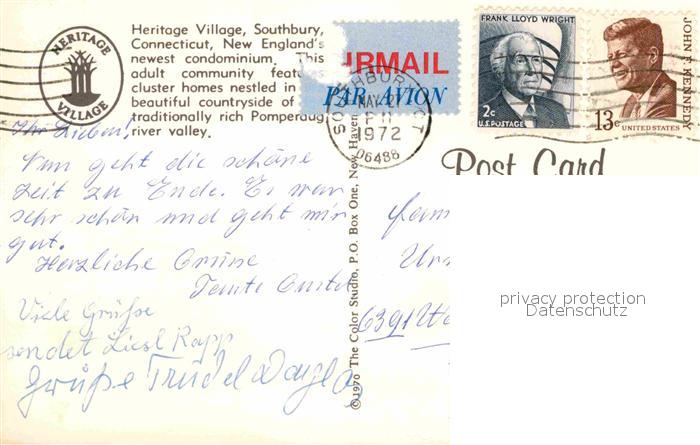 HERITAGE VILLAGE
Heritage Village, Southbury,
Connecticut, New England's
newest condominium. This
adult community
cluster homes nestled in
beautiful countryside of
traditionally rich Pomperaug
river valley.
AIRMAIL
PAR AVION
SOUTHBURY CT
MAY
PM
1972
06488
FRANK LLOYD WRIGHT
2c
U.S. POSTAGE
JOHN F. KENNEDY
13c
UNITED STATES
Post Card
Ihr Lieben!
Nun geht die schöne
Zeit zu Ende. Es war
sehr schön und geht mir
gut.
Herzliche Grüße
Tante
Viele Grüße
sendet Liesl Rapp
Grüße Trudel
©1970 The Color Studio, P.O. Box One, New Haven
Fam
6391
privacy protection
Datenschutz